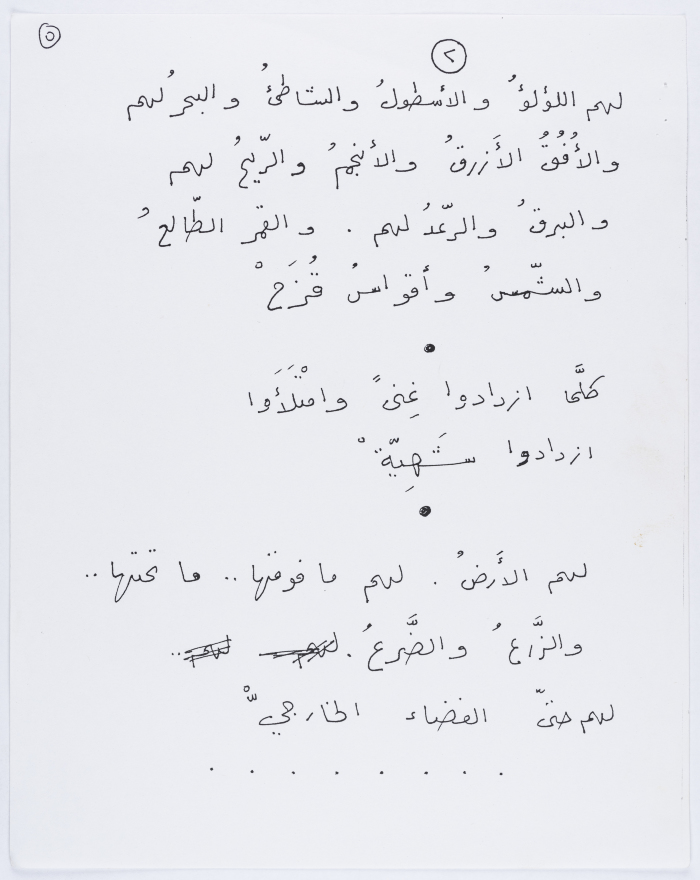 ٥
٢
لهم اللؤلؤُ والأسطولُ والشاطئُ والبحرُ لهم
والأُفُقُ الأَزرقُ والأنجمُ والرّيحُ لهم
والبرقُ والرّعدُ لهم . والقمر الطّالعُ
والشّمسُ وأقواسُ قُزَحْ
كلَّما ازدادوا غِنىً وامْتَلَأَوا
ازدادوا شَهِيّةْ
لهم الأَرضُ . لهم ما فوقها .. ما تحتها ..
والزَّرعُ والضَّرعُ . لهم لهم ..
لهم حتىّ الفضاء الخارجيّْ
. . . . . . . .